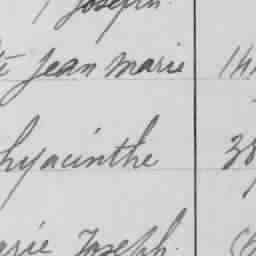 Joseph.
té Jean Marie 14
hyacinthe 38
arie Joseph.